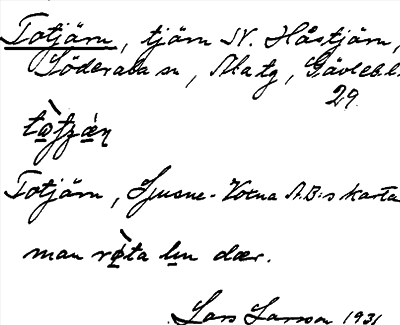 Totjärn, tjärn N. Håstjärn,
Söderala sn, Ala tg, Gävleb.l.
29
Totjärn, Ljusne-Voxna A.B:s karta
man rø̀ta lın dær.
Lars Larsson 1931